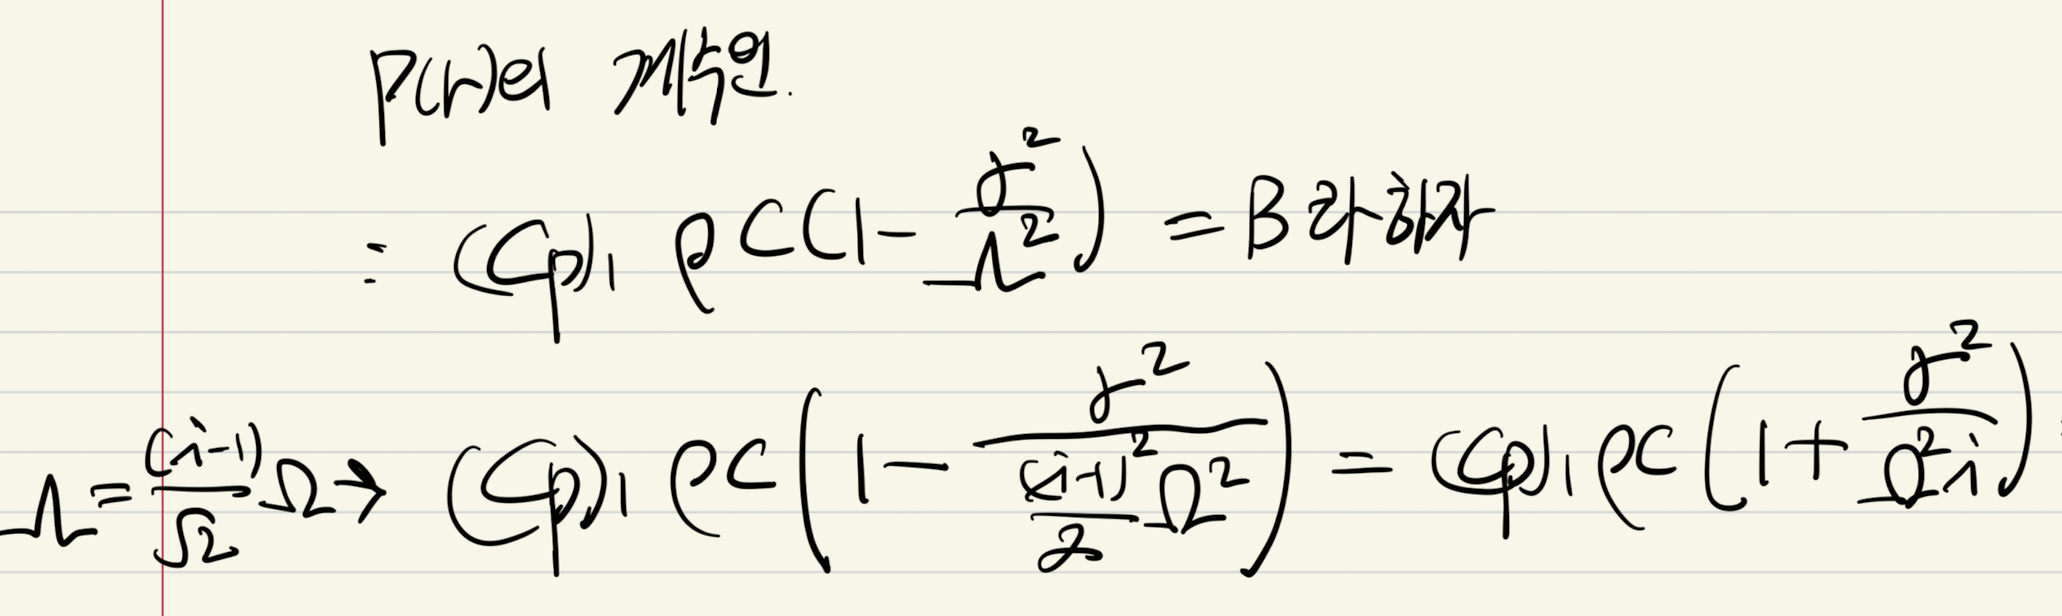 P(r)의 계수인.
: (Cp)₁ ρC(1 - γ²/Λ²) = B라하자
Λ = (i-1)/√2 Ω → (Cp)₁ ρC(1 - γ²/((i-1)²/2 Ω²)) = (Cp)₁ ρC(1 + γ²/(Ω²i))